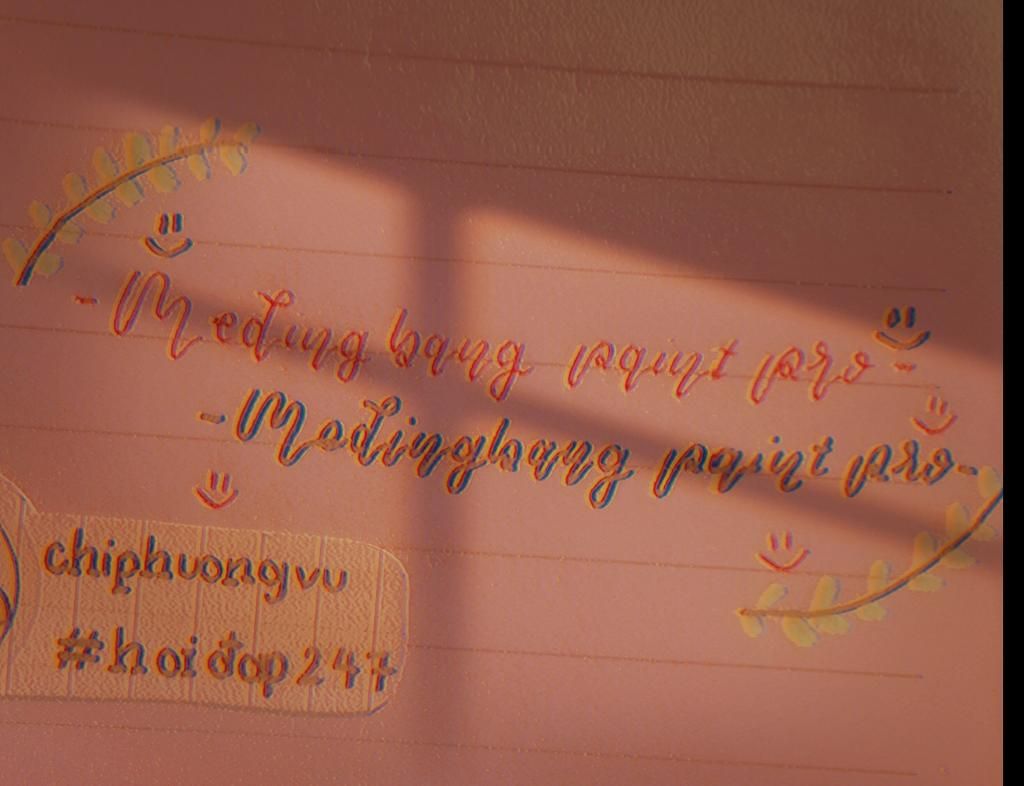 -Međing bang paint pro-
-Međingbang paint pro-
chiphuongvu
#hoiđap247